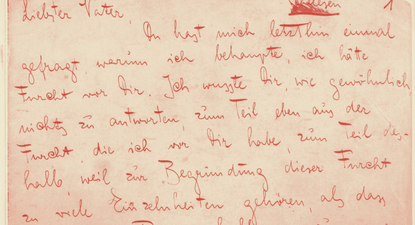 Liebster Vater,
1
Du hast mich letzthin einmal
gefragt, warum ich behaupte, ich hätte
Furcht vor Dir. Ich wusste Dir, wie gewöhnlich,
nichts zu antworten, zum Teil eben aus der
Furcht, die ich vor Dir habe, zum Teil des-
halb, weil zur Begründung dieser Furcht
zu viele Einzelnheiten gehören, als dass